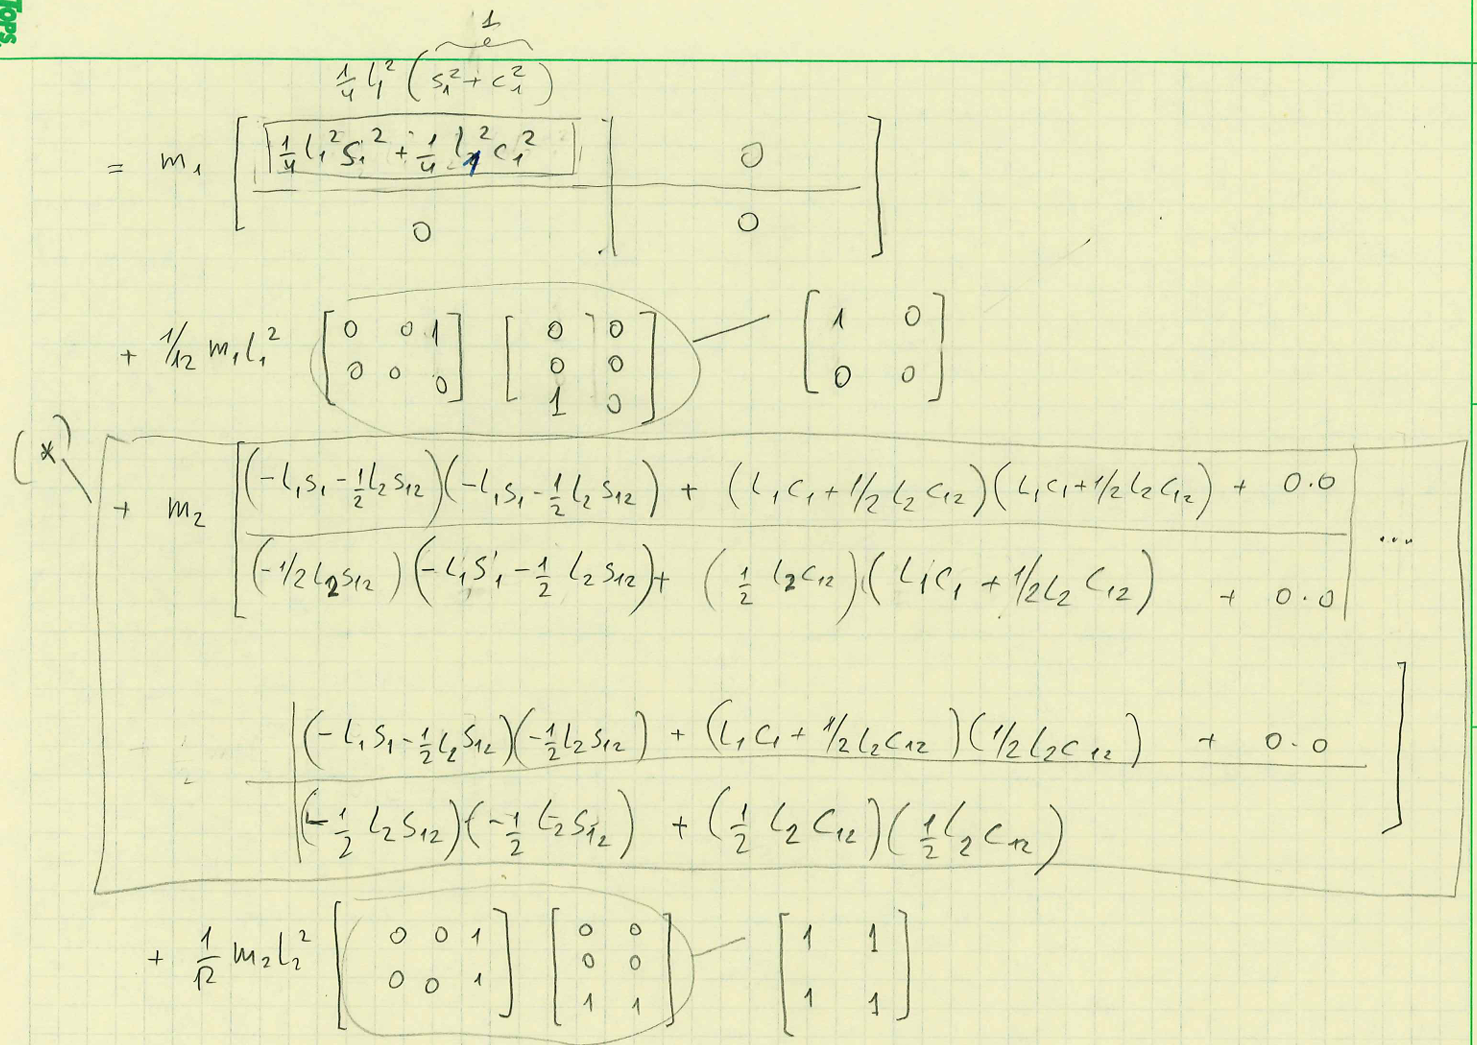 Tops.
1
1/4 l₁² (s₁² + c₁²)
= m₁ [ 1/4 l₁² s₁² + 1/4 l₁² c₁² | 0 ]
0 | 0
+ 1/12 m₁ l₁² [ 0 0 1 ] [ 0 0 ] [ 1 0 ]
0 0 0 0 0 0 0
1 0
(*)
+ m₂ [ (-l₁s₁ - 1/2 l₂s₁₂)(-l₁s₁ - 1/2 l₂s₁₂) + (l₁c₁ + 1/2 l₂c₁₂)(l₁c₁ + 1/2 l₂c₁₂) + 0.0 | ...
(-1/2 l₂s₁₂)(-l₁s₁ - 1/2 l₂s₁₂) + (1/2 l₂c₁₂)(l₁c₁ + 1/2 l₂c₁₂) + 0.0 |
| (-l₁s₁ - 1/2 l₂s₁₂)(-1/2 l₂s₁₂) + (l₁c₁ + 1/2 l₂c₁₂)(1/2 l₂c₁₂) + 0.0 ]
| (-1/2 l₂s₁₂)(-1/2 l₂s₁₂) + (1/2 l₂c₁₂)(1/2 l₂c₁₂)
+ 1/12 m₂ l₂² [ 0 0 1 ] [ 0 0 ] [ 1 1 ]
0 0 1 0 0 1 1
1 1